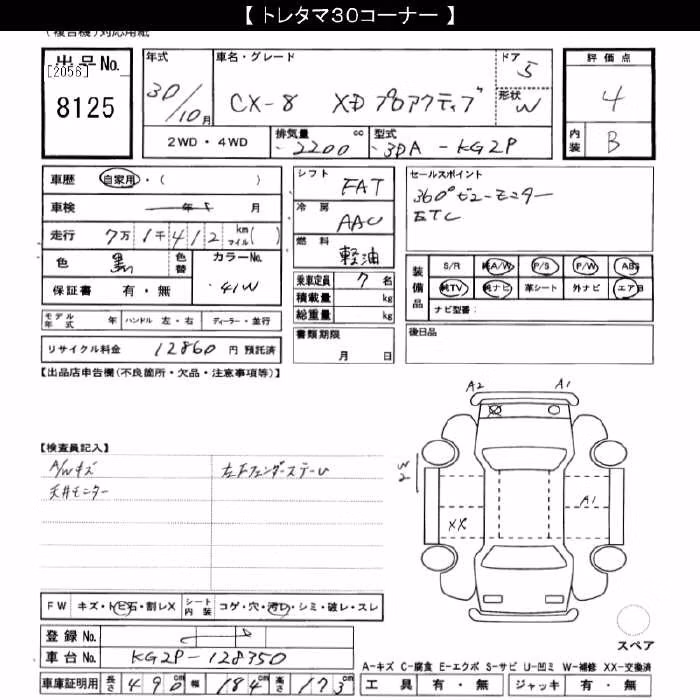 【 トレタマ30コーナー 】
(複合機)対応用紙
出品No.
[2056]
8125
年式
30/10月
車名・グレード
CX-8 XD プロアクティブ
ドア
5
形状
W
評価点
4
内装
B
2WD・4WD
排気量 2200 cc
型式 3DA-KG2P
車歴 自家用・( )
車検 年 月
走行 7万1千412 km マイル( )
色 黒
色替
カラーNo.
41W
保証書 有・無
シフト FAT
冷房 AAC
燃料 軽油
乗車定員 7 名
積載量 kg
総重量 kg
書類期限
月 日
セールスポイント
360°ビューモニター
ETC
装備品
S/R 純A/W P/S P/W ABS
純TV 純ナビ 革シート 外ナビ エアB
ナビ型番:
後日品
モデル年式 年 ハンドル 左・右 ディーラー・並行
リサイクル料金 12860 円 預託済
【出品店申告欄(不良箇所・欠品・注意事項等)】
【検査員記入】
A/Wキズ
天井モニター
左Fフェンダーステー
A2
A1
W2
A1
XX
FW キズ・トビ石・割レX
シート内装 コゲ・穴・汚レ・シミ・破レ・スレ
登録No.
車台No. KG2P-128350
車庫証明用 長さ 490 cm 幅 184 cm 高さ 173 cm
スペア
A-キズ C-腐食 E-エクボ S-サビ U-凹ミ W-補修 XX-交換済
工具 有・無 ジャッキ 有・無